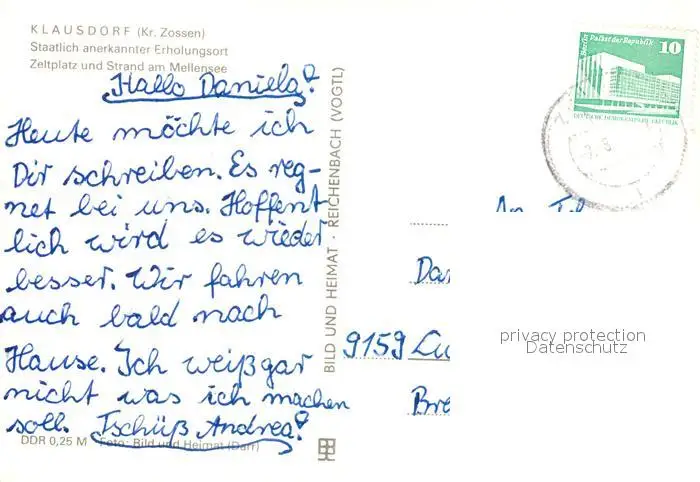 KLAUSDORF (Kr. Zossen)
Staatlich anerkannter Erholungsort
Zeltplatz und Strand am Mellensee
Hallo Daniela!
Heute möchte ich
Dir schreiben. Es reg-
net bei uns. Hoffent
lich wird es wieder
besser. Wir fahren
auch bald nach
Hause. Ich weiß gar
nicht was ich machen
soll. Tschüß Andrea!
DDR 0,25 M · Foto: Bild und Heimat (Darr)
BILD UND HEIMAT · REICHENBACH (VOGTL)
Berlin Palast der Republik
10
DEUTSCHE DEMOKRATISCHE REPUBLIK
An
Dan
9159 Lu
Bre
privacy protection
Datenschutz